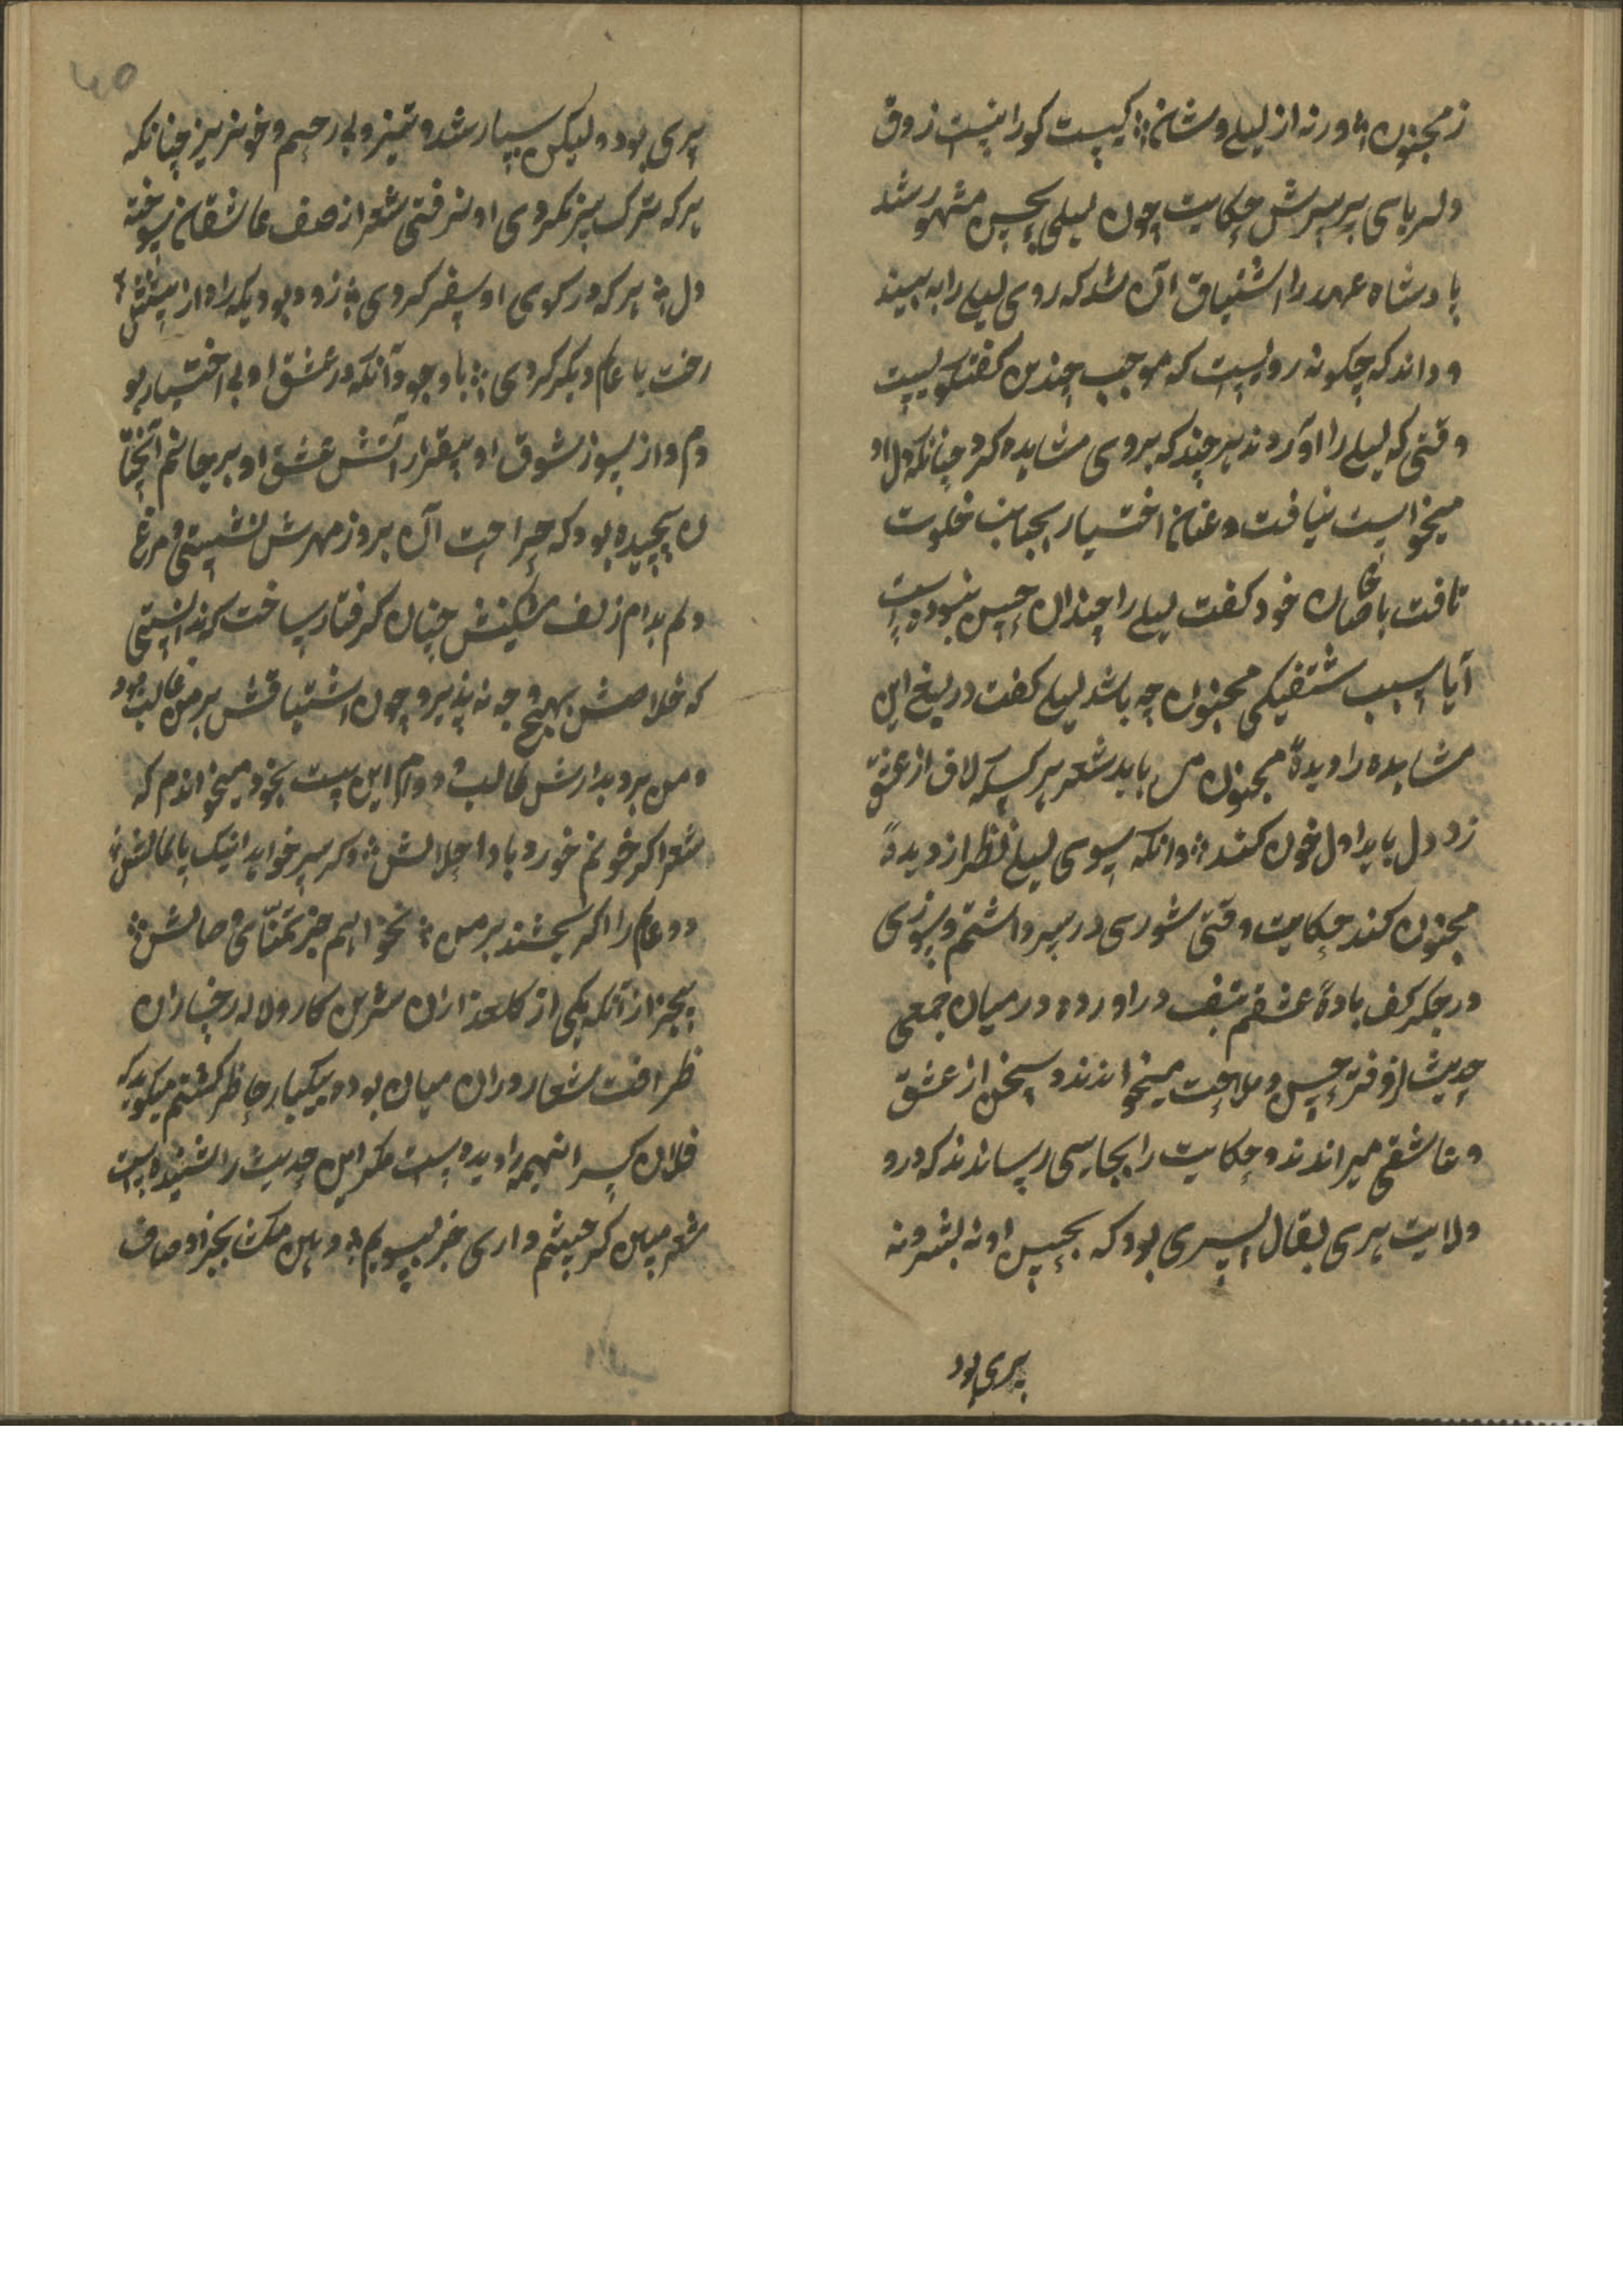 ز مجنون ؞ ورنه از لیلی وشان ؞ کیست کورا نیست ذوق
دلربای بر سرش حکایت چون لیلی بحسن مشهور شد
پادشاه عهد را اشتیاق آن شد که روی لیلی را به بیند
و داند که چکونه رویست که موجب چندین کفتکویست
وقتی که لیلی را آوردند هر چند که بروی مشاهده کرد چنانکه دل او
میخواست نیافت و عنان اختیار بجانب خلوت
تافت با خاصان خود کفت لیلی را چندان حسن نبوده است
آیا سبب شتفیکی مجنون چه باشد لیلی کفت دریغ این
مشاهده را دیدهٔ مجنون می باید شعر هر کسیکه لاف از عشق
زد دل باید اول خون کند ؞ وانکه بسوی لیلی نظر از دیدهٔ
مجنون کند حکایت وقتی شوری در سر داشتم و سوزی
در جکر کف بادهٔ عشقم بتف در اورده در میان جمعی
حدیث از دفتر حسن و ملاحت میخواندند و سخن از عشق
و عاشقی میراندند و حکایت را بجایی رساندند که در
ولایت هری بقال پسری بود که بحسن او نه بشر و نه
پری بود
پری بود و لیکن بسیار تند و تمیز و بی رحم و خونریز چنانکه
هر که ترک سر نکردی او نرفتی شعر از صف عاشقان سوخته
دل ؞ هر که در کوی او سفر کردی ؞ زود بودیکه راوار هستیش ؞
رخت با عالم دیکر کردی ؞ با وجود آنکه در عشق او بی اختیار بو
دم و از سوز شوق او بیقرار آتش عشق او بر جانم آنچنا
ن پیچیده بود که جراحت آن بروز مهرش نشستی و مرغ
دلم بدام زلف مشکینش چنان کرفتار ساخت که ندانستی
که خلاصش بهیچ وجه نه پذیرد چون اشتیاقش بر من غالب بود
و من بر دیدارش طالب و دوام این بیت بخود میخواندم که
شعر اکر خونم خورد بادا حلالش ؞ وکر سر خواهد اینک پایمالش ؞
دو عالم را اکر بخشند بر من ؞ نخواهم جز تمنّای وصالش ؞
بیجز از آنکه یکی از کلعذاران شیرین کار و لاله رخساران
ظرافت شعار در آن میان بود و بیکبار حاظر کشتم میکوید که
فلان کس اینهمه را دیده است مکر این حدیث را نشنیده است
شعر مبین کر چشم داری جز بسویم ؞ و هان مکشا بجز اوصاف